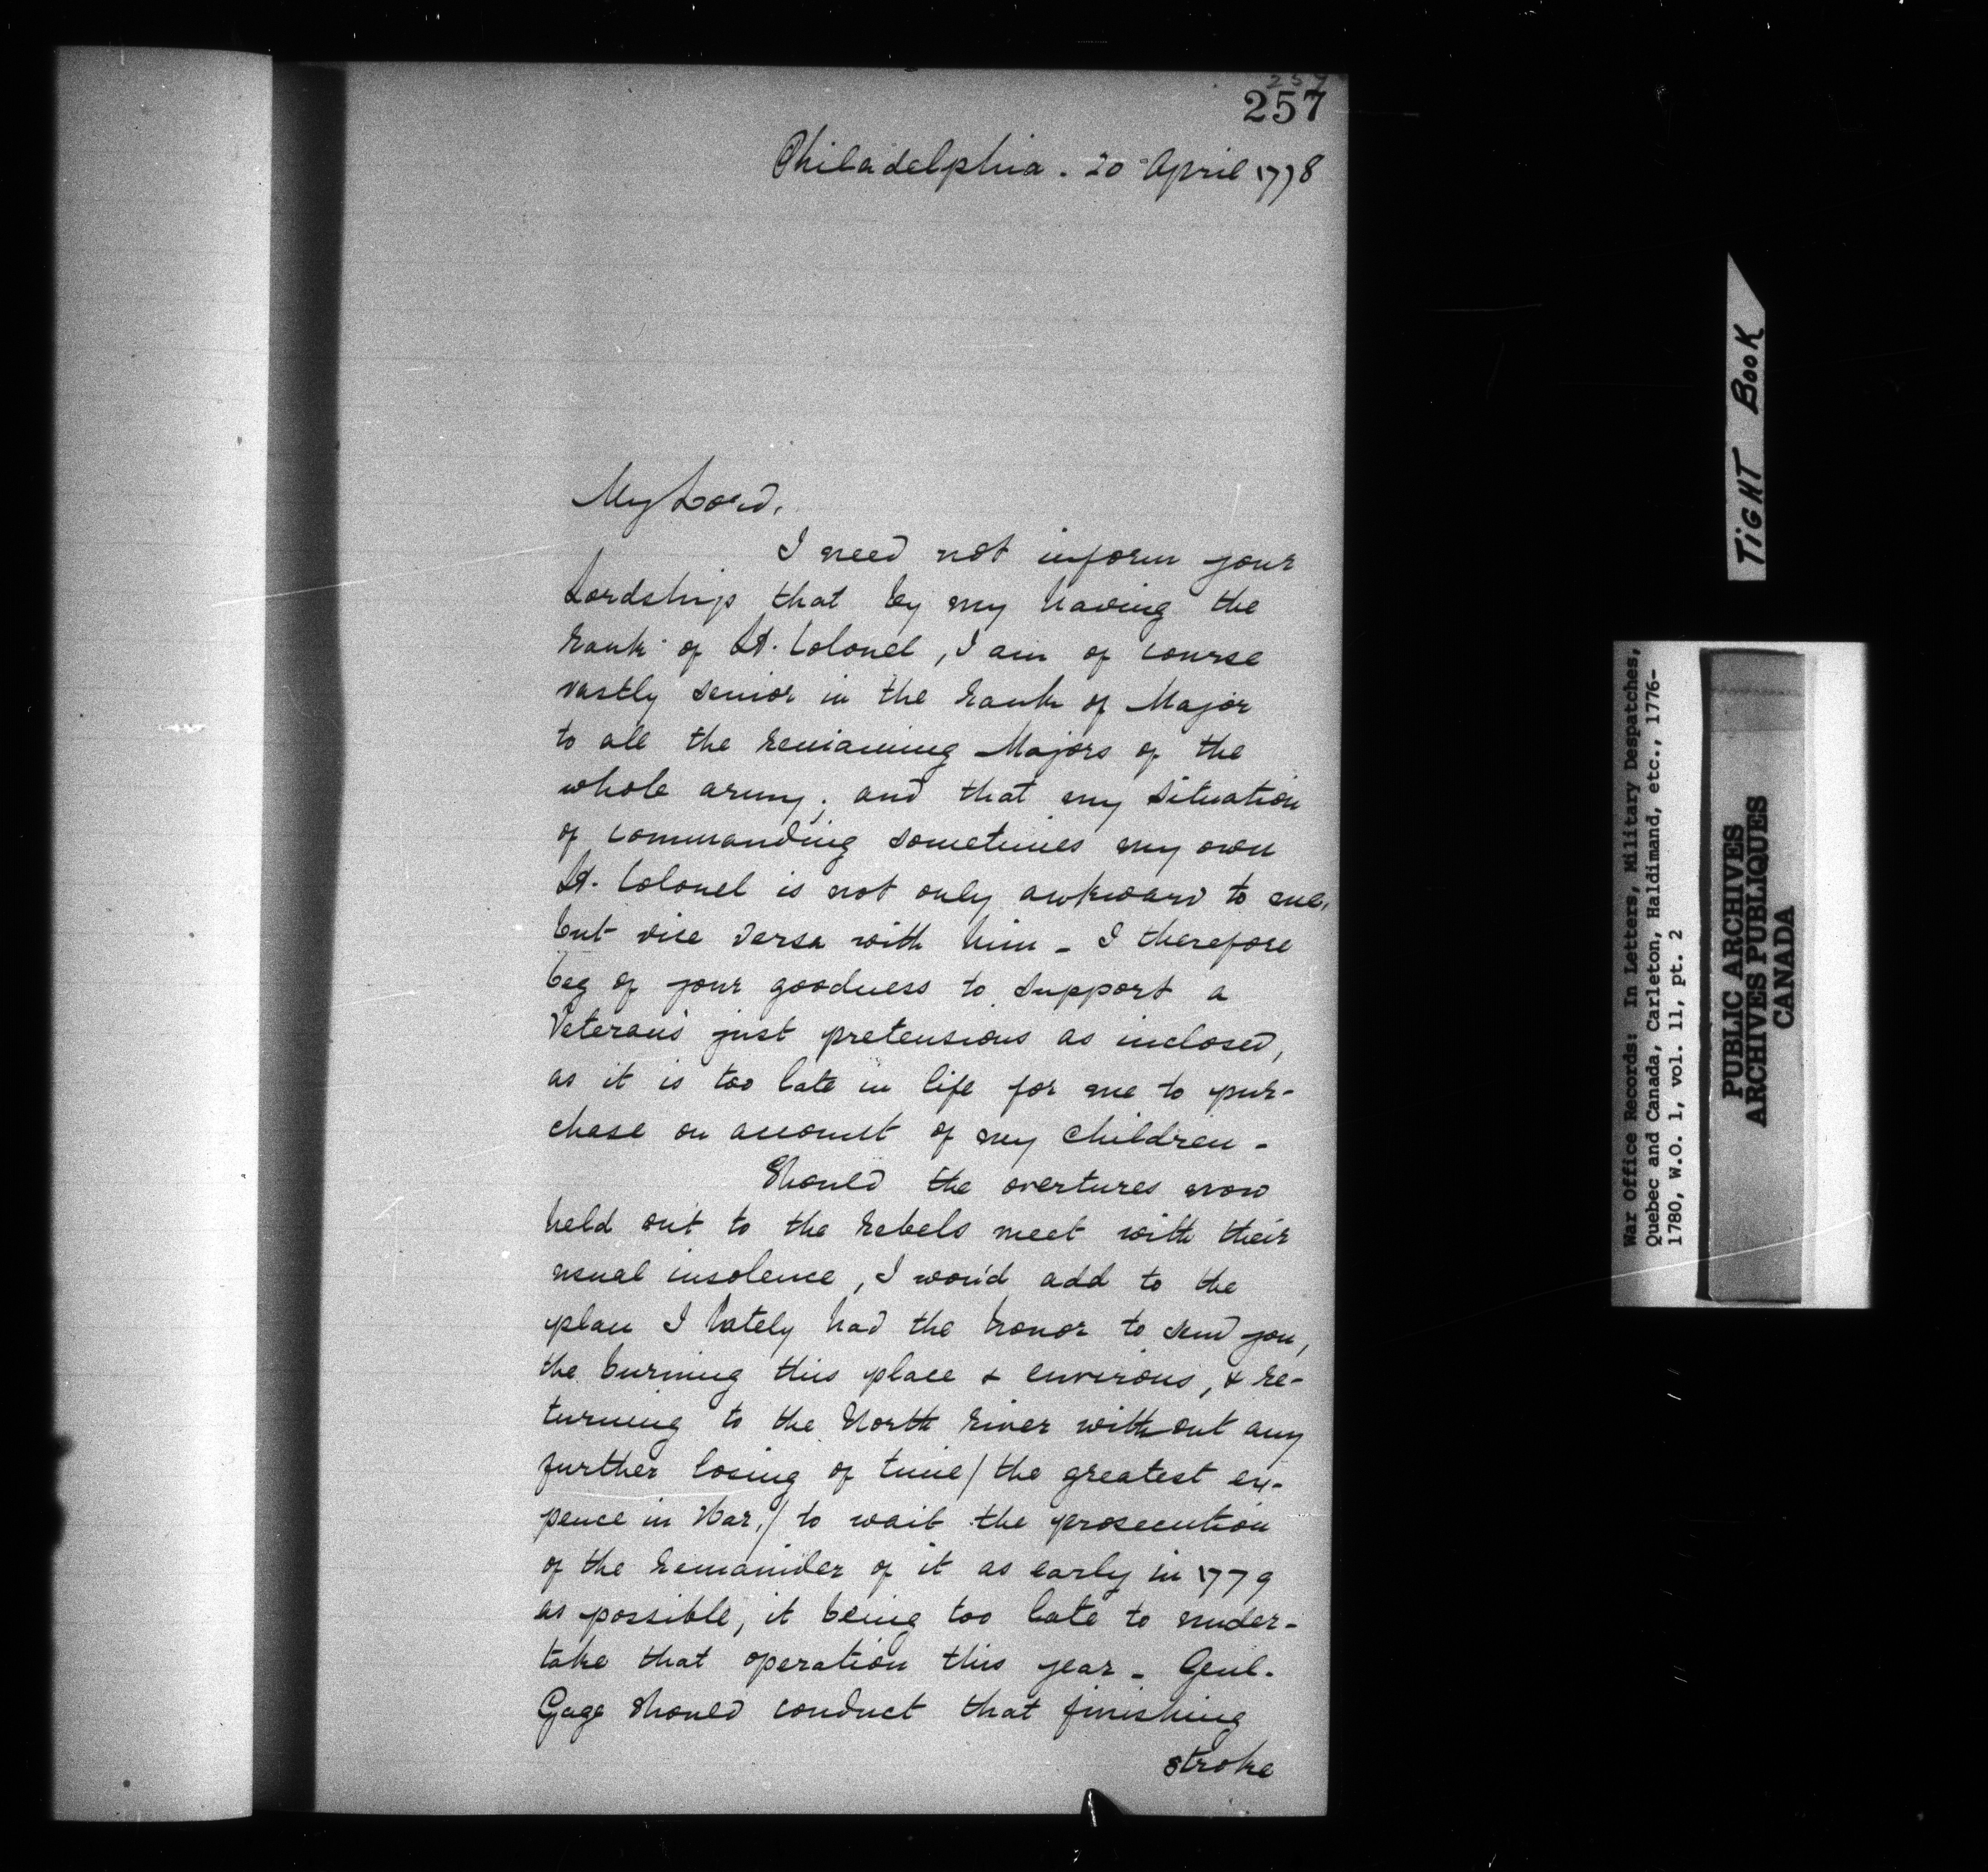 257
257
Philadelphia. 20 April 1778
My Lord,
I need not inform your
Lordship that by my having the
rank of Lt. Colonel, I am of course
vastly senior in the rank of Major
to all the remaining Majors of the
whole army; and that my situation
of commanding sometimes my own
Lt. Colonel is not only awkward to me,
but vice versa with him - I therefore
beg of your goodness to support a
Veterans just pretensions as inclosed,
as it is too late in life for me to pur-
chase on account of my children -
Should the overtures now
held out to the rebels meet with their
usual insolence, I wou'd add to the
plan I lately had the honor to send you,
the burning this place & environs, & re-
turning to the North River without any
further losing of time / the greatest ex-
pence in War, / to wait the prosecution
of the remainder of it as early in 1779
as possible, it being too late to under-
take that operation this year - Genl.
Gage should conduct that finishing
stroke
TIGHT BOOK
War Office Records: In Letters, Military Despatches,
Quebec and Canada, Carleton, Haldimand, etc., 1776-
1780, W.O. 1, vol. 11, pt. 2
PUBLIC ARCHIVES
ARCHIVES PUBLIQUES
CANADA